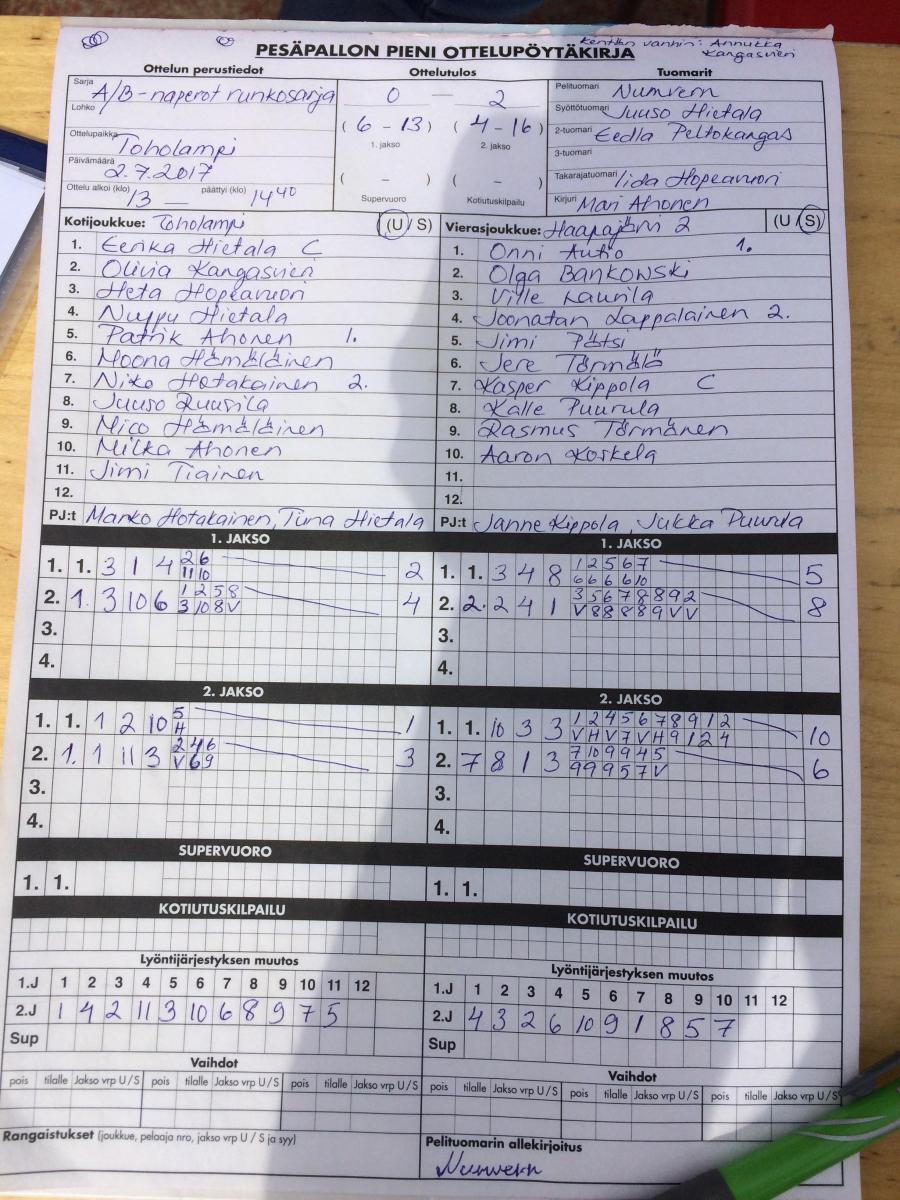 Kentän vanhin: Annukka
Kangasvieri
PESÄPALLON PIENI OTTELUPÖYTÄKIRJA
Ottelun perustiedot
Sarja A/B-naperot runkosarja
Lohko
Ottelupaikka Toholampi
Päivämäärä 2.7.2017
Ottelu alkoi (klo) 13 — päättyi (klo) 14 40
Ottelutulos
0 — 2
( 6 - 13 ) ( 4 - 16 )
1. jakso 2. jakso
( - ) ( - )
Supervuoro Kotiutuskilpailu
Tuomarit
Pelituomari Nurmvern
Syöttötuomari Juuso Hietala
2-tuomari Eedla Peltokangas
3-tuomari
Takarajatuomari Iida Hopeavuori
Kirjuri Mari Ahonen
Kotijoukkue: Toholampi (U / S)
1. Eerika Hietala C
2. Olivia Kangasvieri
3. Heta Hopeavuori
4. Nuppu Hietala
5. Patrik Ahonen 1.
6. Moona Hämäläinen
7. Niko Hotakainen 2.
8. Juuso Ruusila
9. Mico Hämäläinen
10. Milka Ahonen
11. Jimi Tiainen
12.
PJ:t Marko Hotakainen, Tiina Hietala
Vierasjoukkue: Haapajärvi 2 (U / S)
1. Onni Autio 1.
2. Olga Bankowski
3. Ville Laurila
4. Joonatan Lappalainen 2.
5. Jimi Pätsi
6. Jere Törmälä
7. Kasper Kippola C
8. Kalle Puurula
9. Rasmus Törmänen
10. Aaron Koskela
11.
12.
PJ:t Janne Kippola, Jukka Puurula
1. JAKSO
1. 1. 3 1 4 2 6 2
11 10
2. 1. 3 10 6 1 2 5 8 4
3 10 8 V
3.
4.
1. JAKSO
1. 1. 3 4 8 1 2 5 6 7 5
6 6 6 6 10
2. 2. 2 4 1 3 5 6 7 8 8 9 2 8
V 8 8 8 8 9 V V
3.
4.
2. JAKSO
1. 1. 1 2 10 5 1
H
2. 1. 1 11 3 2 4 6 3
V 6 9
3.
4.
2. JAKSO
1. 1. 10 3 3 1 2 4 5 6 7 8 9 1 2 10
V H V 7 V H 9 1 2 4
2. 7 8 1 3 7 10 9 9 4 5 6
9 9 9 5 7 V
3.
4.
SUPERVUORO
1. 1.
SUPERVUORO
1. 1.
KOTIUTUSKILPAILU
KOTIUTUSKILPAILU
Lyöntijärjestyksen muutos
1.J 1 2 3 4 5 6 7 8 9 10 11 12
2.J 1 4 2 11 3 10 6 8 9 7 5
Sup
Lyöntijärjestyksen muutos
1.J 1 2 3 4 5 6 7 8 9 10 11 12
2.J 4 3 2 6 10 9 1 8 5 7
Sup
Vaihdot
pois tilalle Jakso vrp U / S pois tilalle Jakso vrp U / S pois tilalle Jakso vrp U / S
Vaihdot
pois tilalle Jakso vrp U / S pois tilalle Jakso vrp U / S pois tilalle Jakso vrp U / S
Rangaistukset (joukkue, pelaaja nro, jakso vrp U / S ja syy)
Pelituomarin allekirjoitus